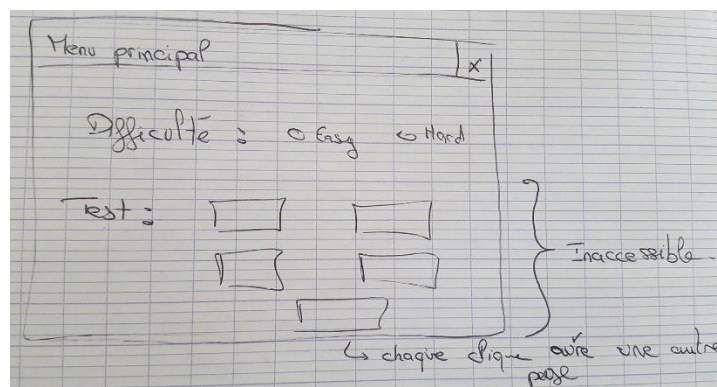 Menu principal
x
Difficulté : Easy Hard
Test :
Inaccessible
↳ chaque clique ouvre une autre
page